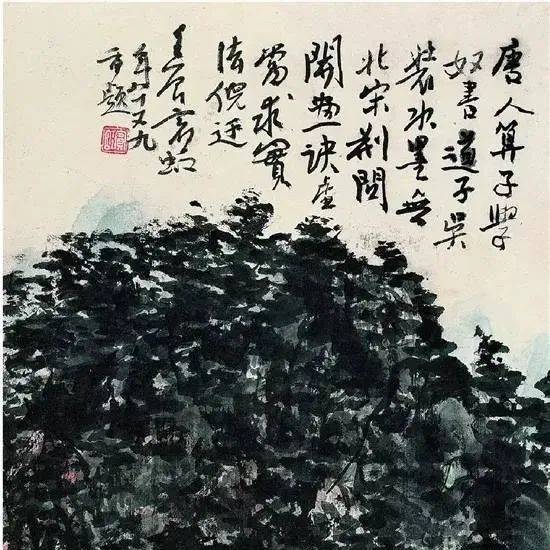 唐人算子學
奴書道子吳
裝水墨無
北宋荆關
開画訣虛
當求實
法倪迂
壬辰賓虹
年八十又九
題